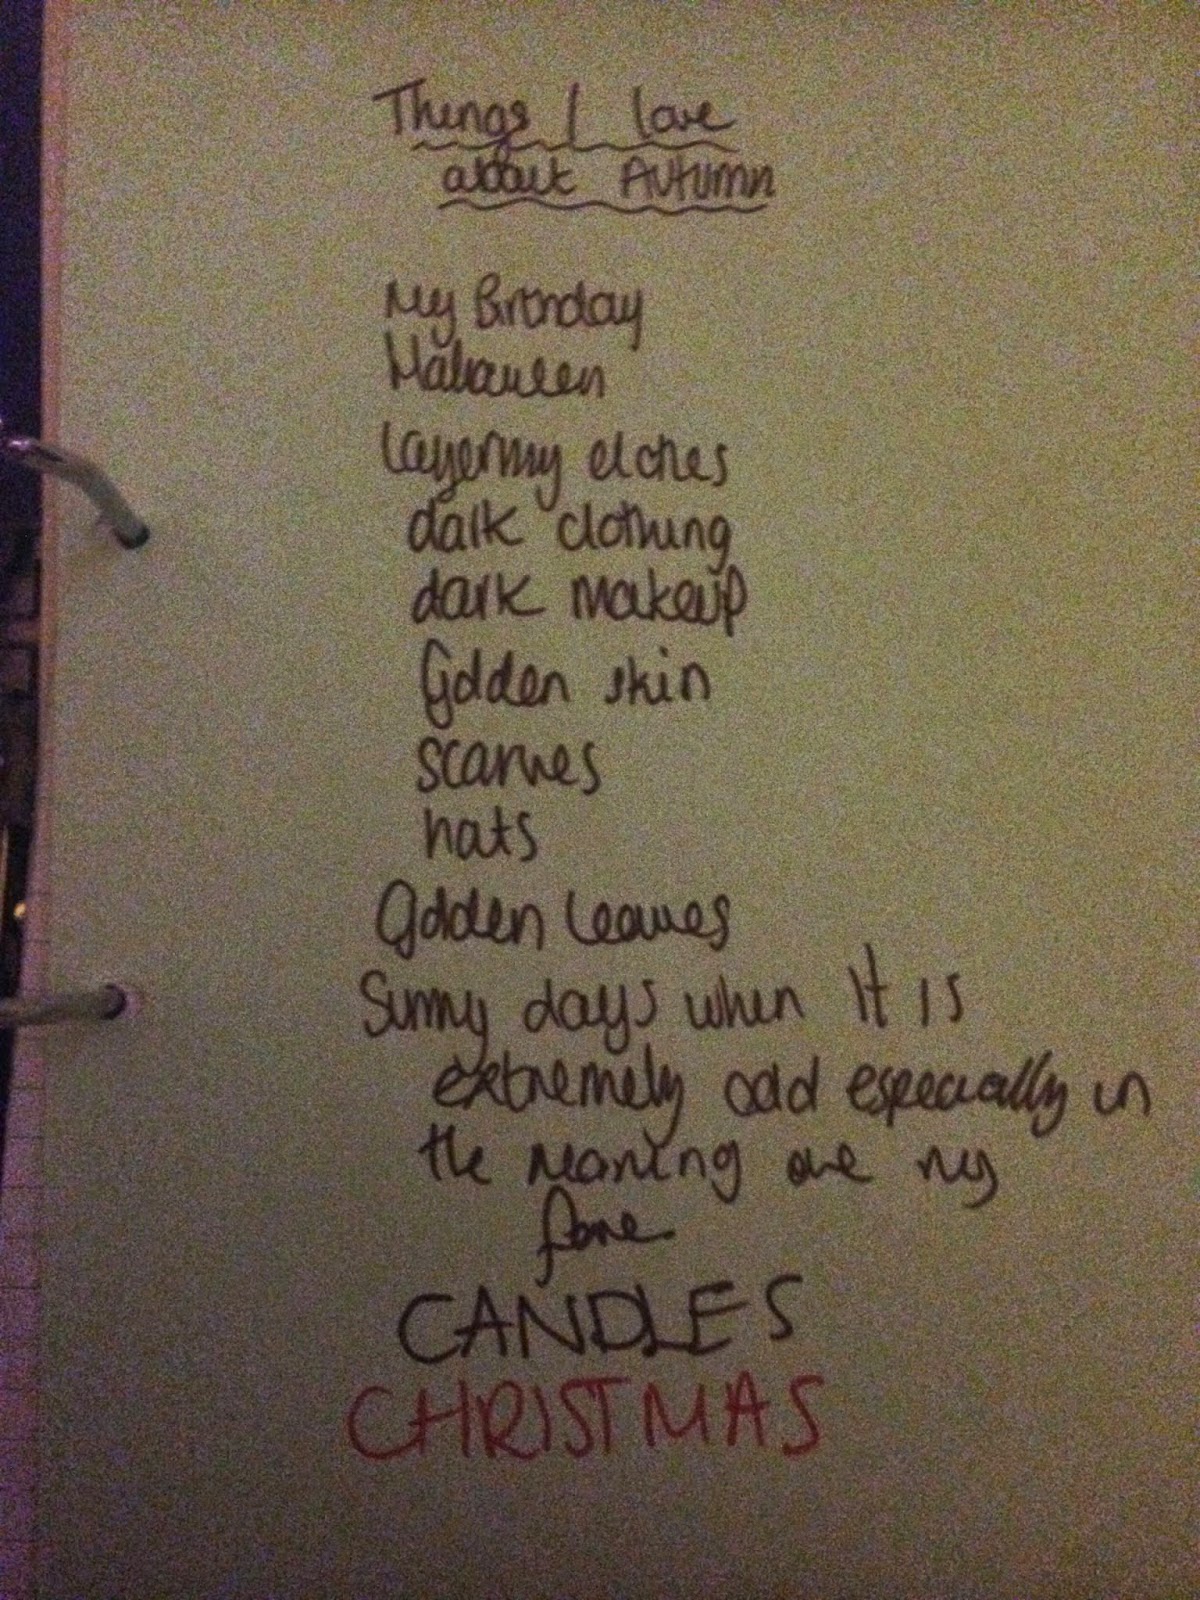 Things I love
about Autumn
My Birthday
Halloween
Layering clothes
dark clothing
dark makeup
Golden skin
scarves
hats
Golden leaves
Sunny days when it is
extremely cold especially in
the morning are my
fave
CANDLES
CHRISTMAS